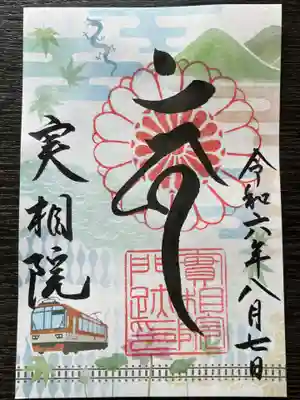 令和六年八月七日
實相院門跡印
実相院